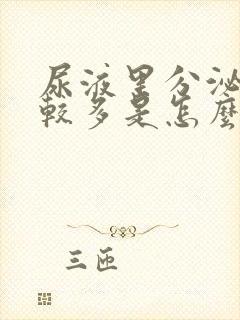 尿液里分泌
较多是怎麼
三匝